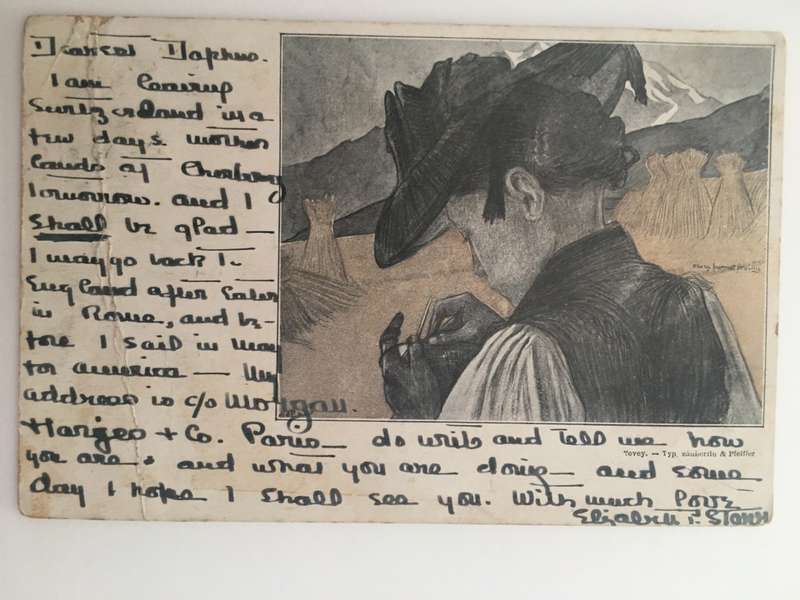 Dearest Daphne.
I am leaving
Switzerland in a
few days. Mother
lands at Cherbourg
tomorrow. and I
shall be glad —
I may go back to
England after Easter
in Rome, and be-
fore I sail in May
for America — My
address is c/o Morgan.
Harjes + Co. Paris — do write and tell me how
you are, and what you are doing — and some
day I hope I shall see you. With much love
Elizabeth P. Starr
Vevey. — Typ. Säuberlin & Pfeiffer